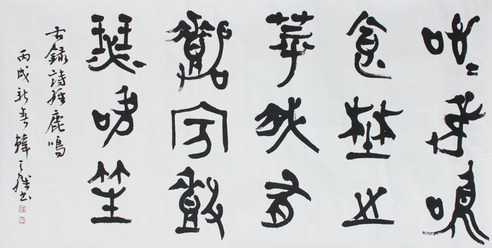 呦〻鹿鳴
食埜之
苹我有
嘉賓鼓
瑟吹笙
古錄詩經鹿鳴
丙戌新春韓天雍書